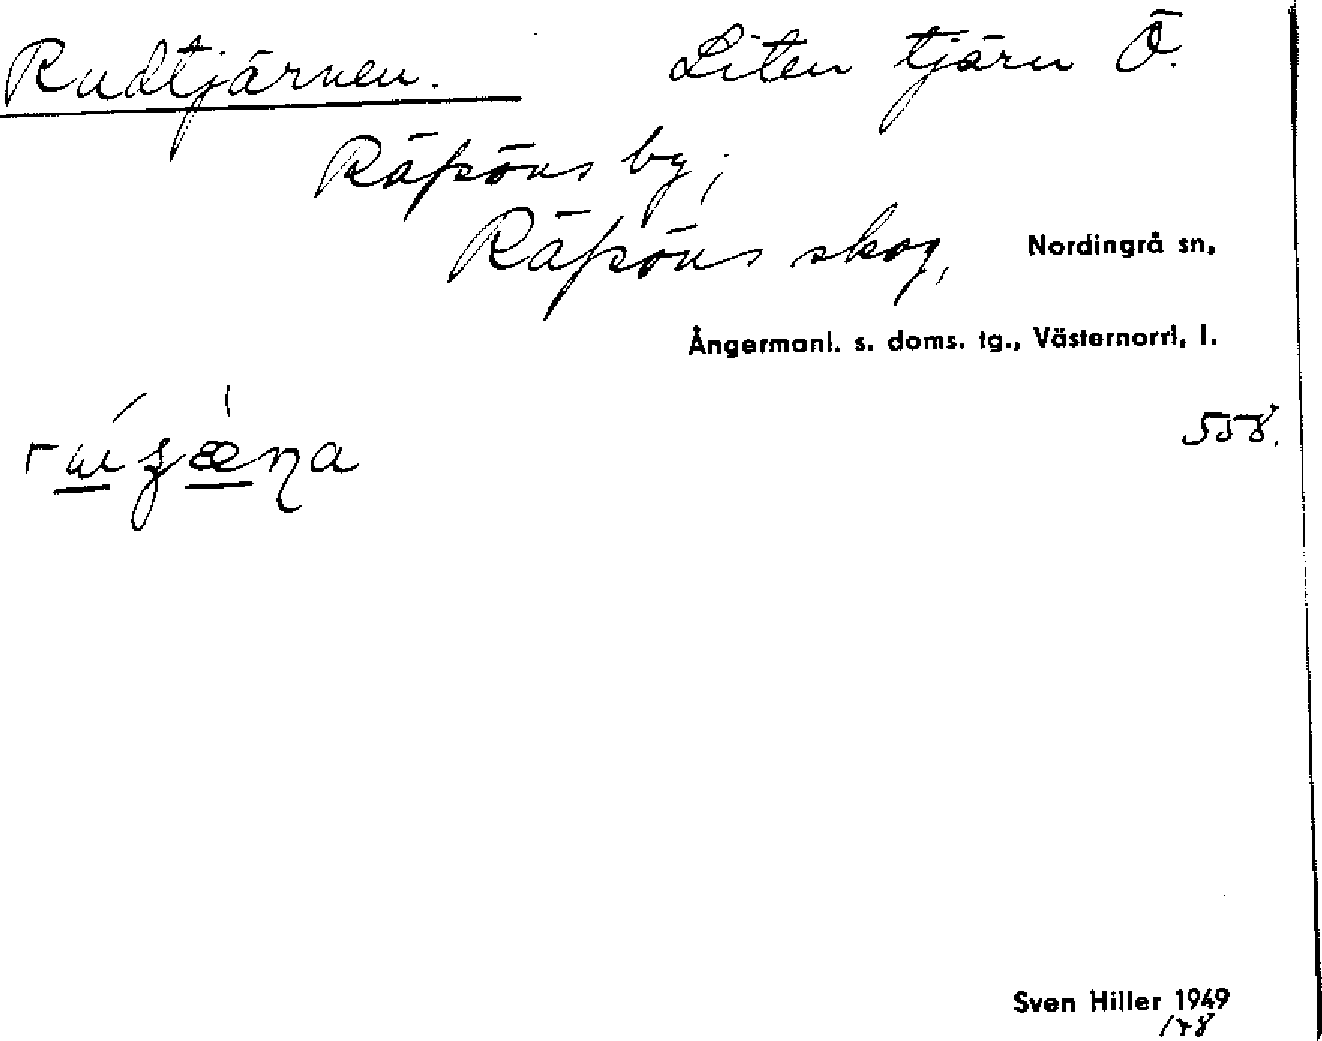 Rudtjärnen. Liten tjärn Ö.
Räpöns by;
Räpöns skog,
Nordingrå sn,
Ångermanl. s. doms. tg., Västernorrl. l.
558.
Sven Hiller 1949